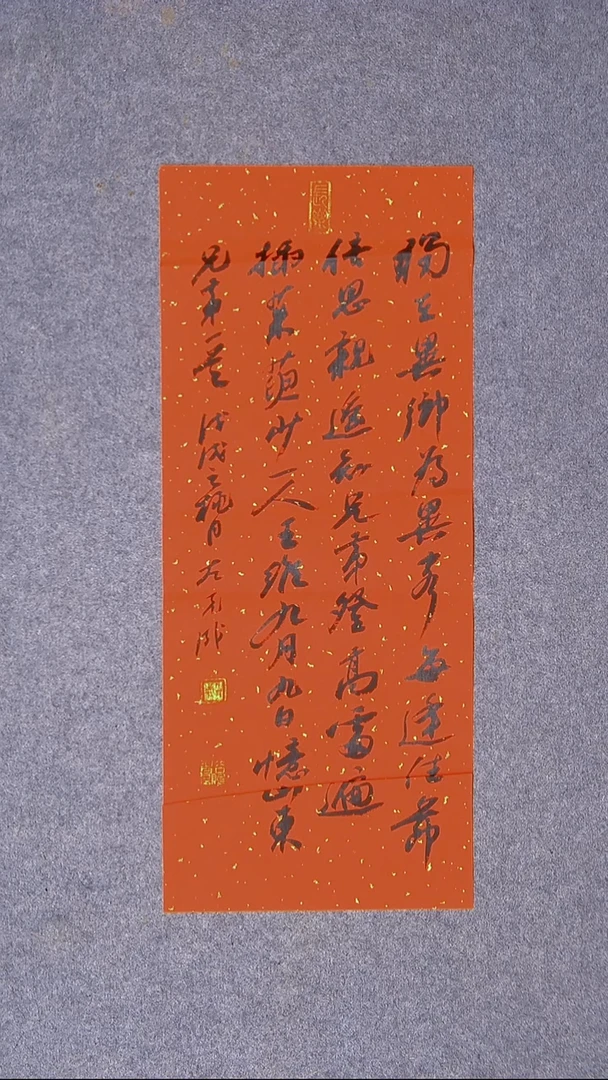 獨在異鄉為異客每逢佳節
倍思親遥知兄弟登高處遍
插茱萸少一人王維九月九日憶山東
兄弟一首 戊戌之槐月